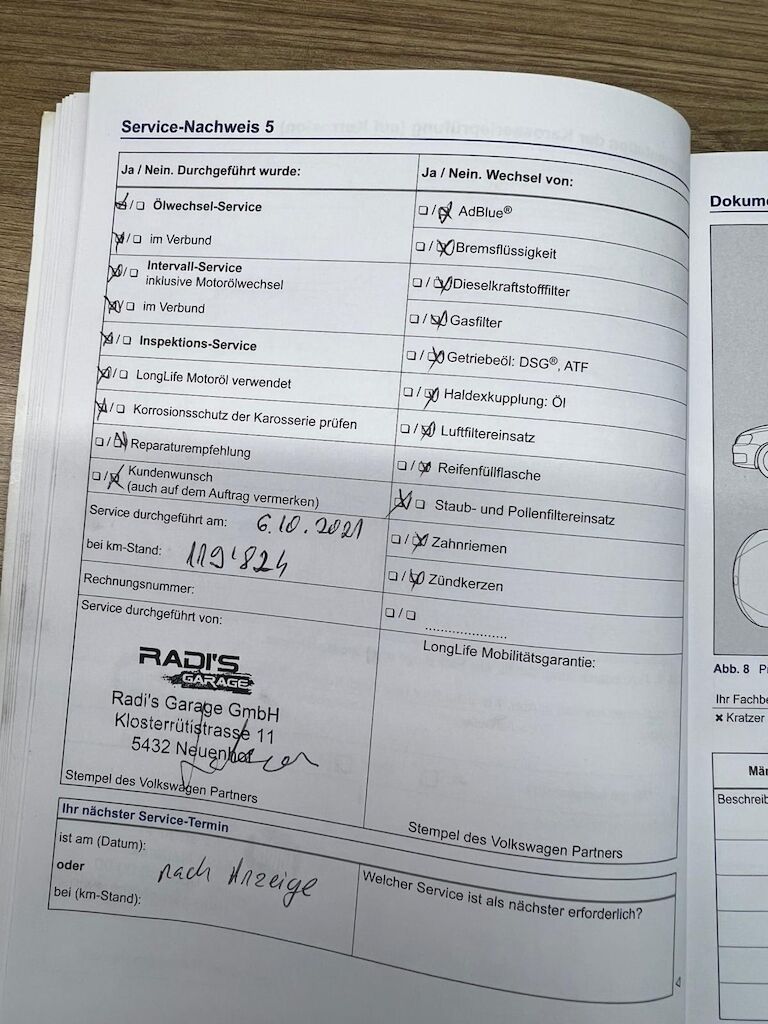 Service-Nachweis 5
Ja / Nein. Durchgeführt wurde:
Ölwechsel-Service
im Verbund
Intervall-Service
inklusive Motorölwechsel
im Verbund
Inspektions-Service
LongLife Motoröl verwendet
Korrosionsschutz der Karosserie prüfen
Reparaturempfehlung
Kundenwunsch
(auch auf dem Auftrag vermerken)
Service durchgeführt am: 6.10.2021
bei km-Stand: 119'824
Rechnungsnummer:
Service durchgeführt von:
RADI'S
GARAGE
Radi's Garage GmbH
Klosterrütistrasse 11
5432 Neuenhof
Stempel des Volkswagen Partners
Ja / Nein. Wechsel von:
AdBlue®
Bremsflüssigkeit
Dieselkraftstofffilter
Gasfilter
Getriebeöl: DSG®, ATF
Haldexkupplung: Öl
Luftfiltereinsatz
Reifenfüllflasche
Staub- und Pollenfiltereinsatz
Zahnriemen
Zündkerzen
LongLife Mobilitätsgarantie:
Stempel des Volkswagen Partners
Ihr nächster Service-Termin
ist am (Datum):
oder
nach Anzeige
bei (km-Stand):
Welcher Service ist als nächster erforderlich?
Abb. 8
Ihr
Kratzer